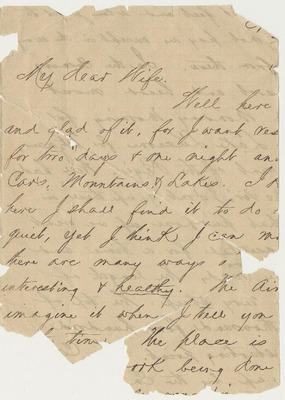 My dear Wife.
Well here
and glad of it, for I want res
for two days & one night an
Cars, Mountains, & Lakes. I
here I shall find it to do
quiet, yet I think I can m
here are many ways
interesting & healthy. The Air
imagine it when I tell you
time. The place is
ork being done